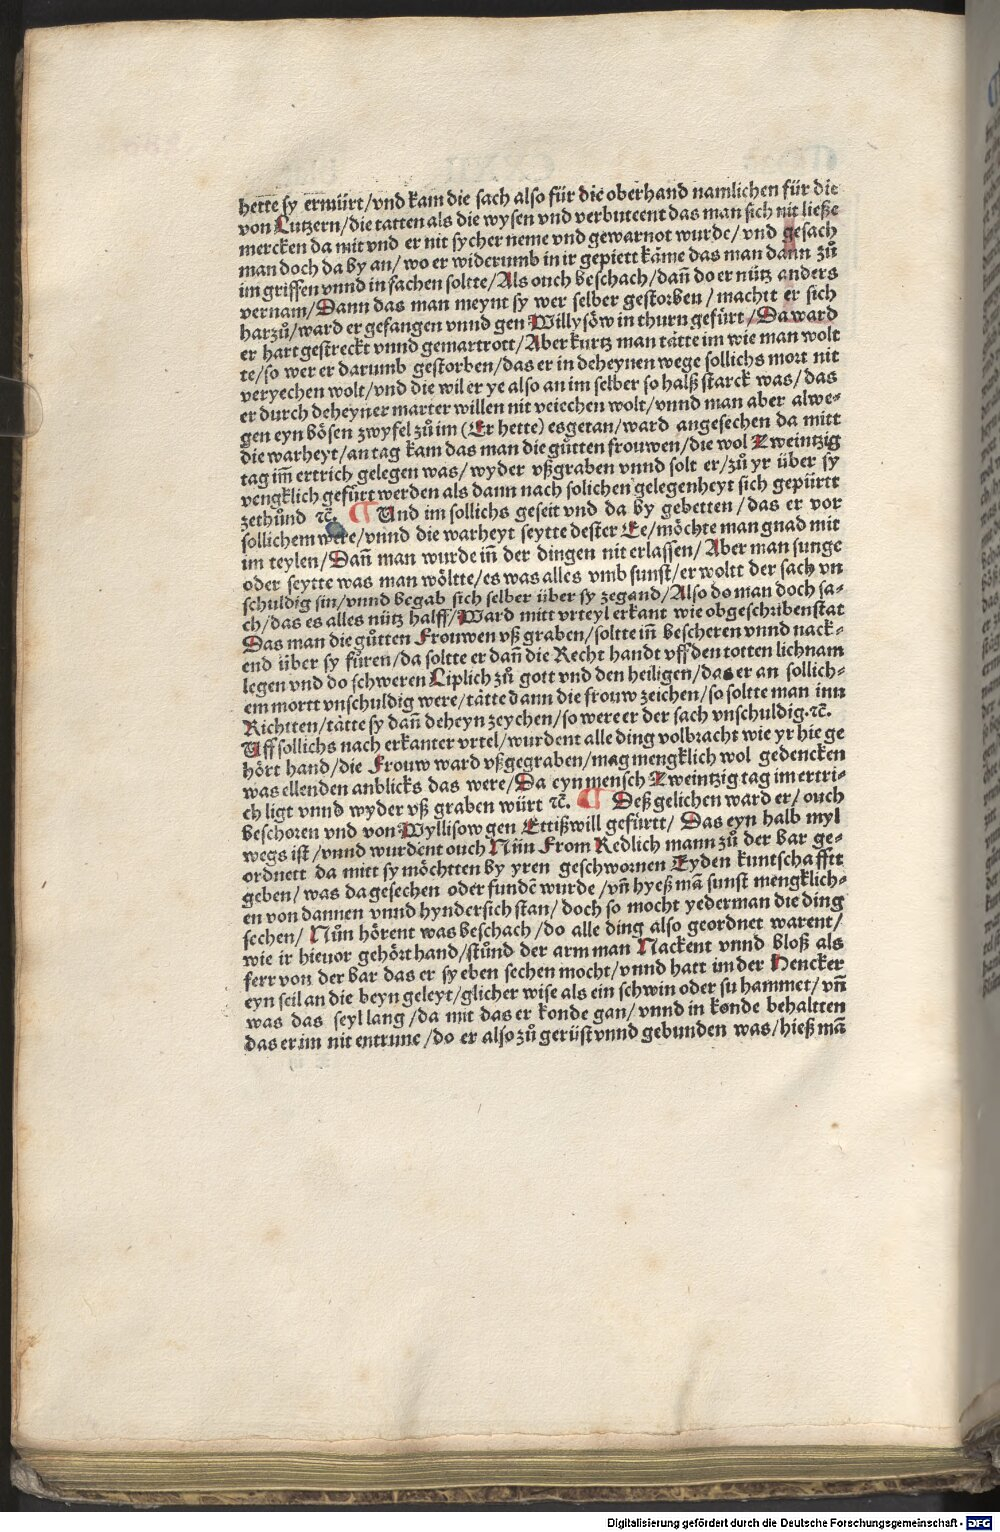 hette sy ermürt/vnd kam die sach also für die oberhand namlichen für die
von Lutzern/die tatten als die wysen vnd verbuteent das man sich nit ließe
mercken da mit vnd er nit sycher neme vnd gewarnot wurde/vnd gesach
man doch da by an/wo er widerumb in ir gepiett käme das man dann zů
im griffen vnnd in sachen soltte/Als ouch beschach/dañ do er nütz anders
vernam/Dann das man meynt sy wer selber gestorben/machtt er sich
harzů/ward er gefangen vnnd gen Willysöw in thurn gefürt/Da ward
er hart gestreckt vnnd gemartrott/Aber kurtz man tätte im wie man wolt
te/so wer er darumb gestorben/das er in deheynen wege sollichs mort nit
veryechen wolt/vnd die wil er ye also an im selber so halß starck was/das
er durch deheyner marter willen nit veiechen wolt/vnnd man aber alwe⸗
gen eyn bösen zwyfel zů im (Er hette) es getan/ward angesechen da mitt
die warheyt/an tag kam das man die gůtten frouwen/die wol Zweintzig
tag im̄ ertrich gelegen was/wyder vßgraben vnnd solt er/zů yr über sy
vengklich gefürt werden als dann nach solichen gelegenheyt sich gepürtt
zethůnd ⁊c̄. ¶ Und im sollichs geseit vnd da by gebetten/das er vor
sollichem were/vnnd die warheyt seytte dester Ee/möchte man gnad mit
im teylen/Dañ man wurde iñ der dingen nit erlassen/Aber man sunge
oder seytte was man wöltte/es was alles vmb sunst/er woltt der sach vn
schuldig sin/vnnd begab sich selber über sy zegand/Also do man doch sa⸗
ch/das es alles nütz halff/Ward mitt vrteyl erkant wie obgeschriben stat
Das man die gůtten Frouwen vß graben/soltte iñ bescheren vnnd nack⸗
end über sy füren/da soltte er dañ die Recht handt vff den totten lichnam
legen vnd do schweren Liplich zů gott vnd den heiligen/das er an sollich⸗
em mortt vnschuldig were/tätte dann die frouw zeichen/so soltte man inn
Richtten/tätte sy dañ deheyn zeychen/so were er der sach vnschuldig.⁊c̄.
Uff sollichs nach erkanter vrtel/wurdent alle ding volbracht wie yr hie ge
hört hand/die Frouw ward vßgegraben/mag mengklich wol gedencken
was ellenden anblicks das were/Da eyn mensch Zweintzig tag im ertri⸗
ch ligt vnnd wyder vß graben würt ⁊c̄. ¶ Deß gelichen ward er/ouch
beschoren vnd von Wyllisow gen Ettißwill gefürtt/Das eyn halb myl
wegs ist/vnnd wurdent ouch Nün From Redlich mann zů der bar ge⸗
ordnett da mitt sy möchtten by yren geschwornen Eyden kuntschafftt
geben/was da gesechen oder fundē wurde/vñ hyeß mā sunst mengklich⸗
en von dannen vnnd hyndersich stan/doch so mocht yederman die ding
sechen/Nůn hörent was beschach/do alle ding also geordnet warent/
wie ir hieuor gehört hand/stůnd der arm man Nackent vnnd bloß als
ferr von der bar das er sy eben sechen mocht/vnnd hatt im der Hencker
eyn seil an die beyn geleyt/glicher wise als ein schwin oder su hammet/vñ
was das seyl lang/da mit das er konde gan/vnnd in konde behaltten
das er im nit entrune/do er also zů gerüst vnnd gebunden was/hieß mā
Digitalisierung gefördert durch die Deutsche Forschungsgemeinschaft - DFG